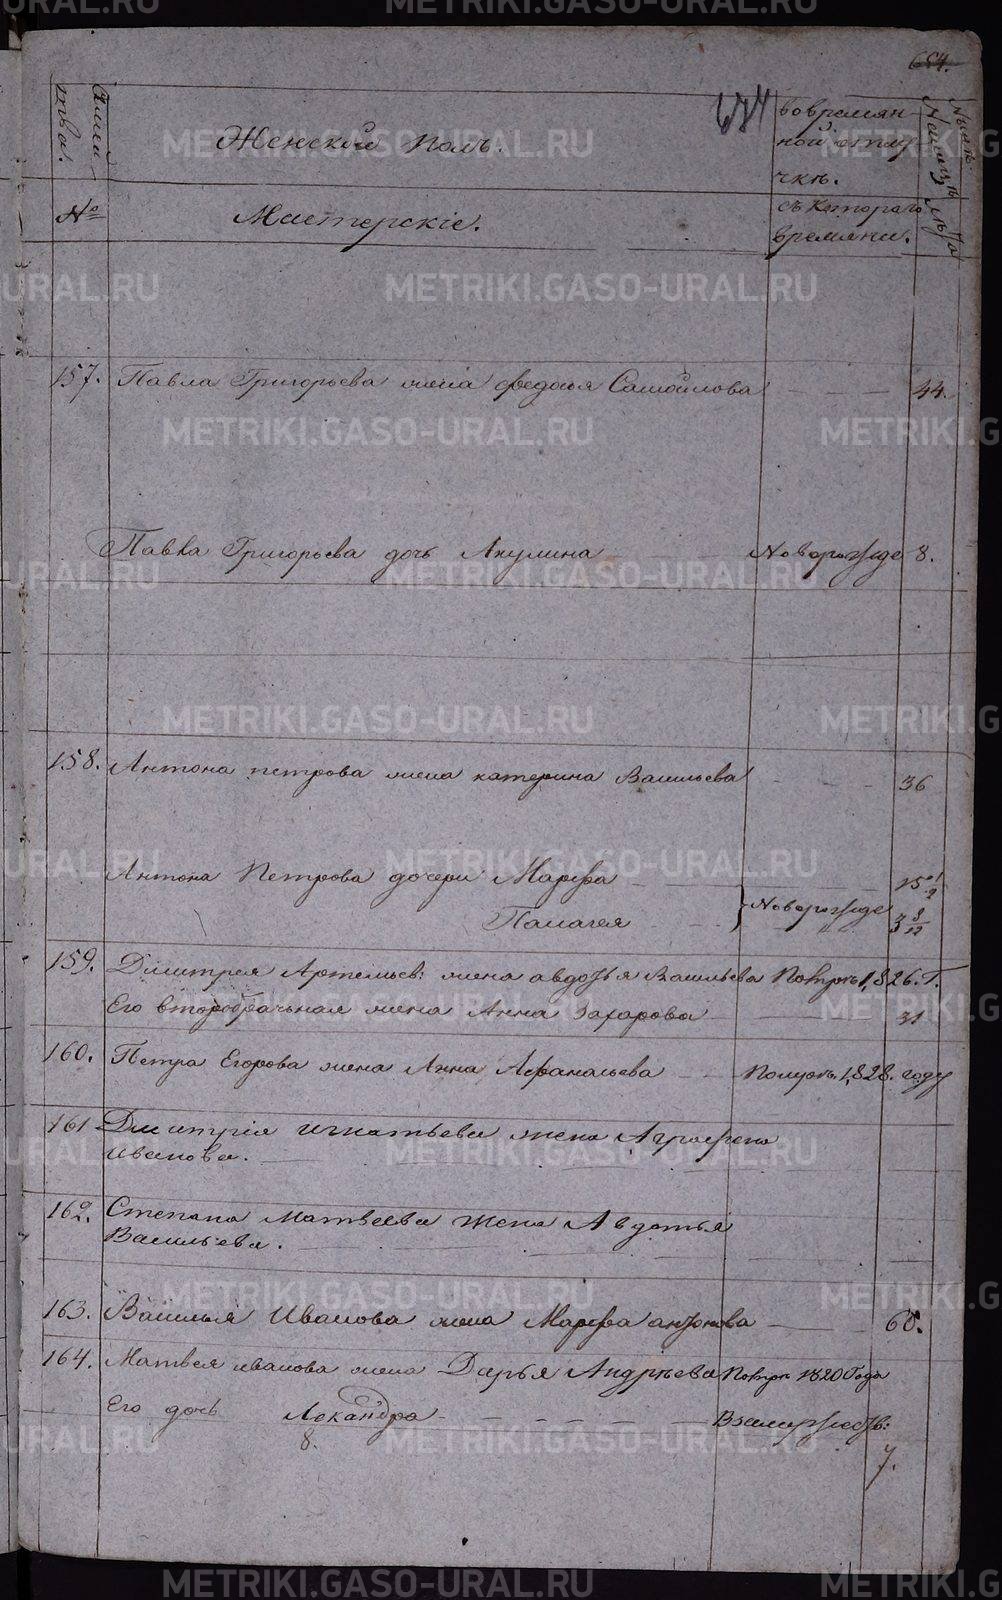 684.
684
Женской полъ.
во времян-
ной отлу-
чкѣ.
Нынѣ
На лицѣ
Семей-
ства.
№
Мастерскіе.
съ котораго
времяни.
лѣта
157. Павла Григорьева жена федосья Самойлова 44.
Павла Григорьева дочь Акулина Новорожде 8.
158. Антона петрова жена катерина Васильева 36
Антона Петрова дочери Марфа 15 1/2
Пелагея Новорожде 3 8/12
159. Дмитрея Артемьев: жена авдотья Васильева Померъ 1826. Г.
Его второбрачная жена Анна захарова 31
160. Петра Егорова жена Анна Афанасьева Померъ. 1828. году
161 Дмитрія игнатьева жена Аграфена
иванова.
162. Степана Матвеева жена Авдотья
Васильева.
163. Василья Иванова жена Марфа антонова 60.
164. Матвея иванова жена Дарья Андрѣева Померъ 1820 Года
Его дочь Локандра В замужеств:
8.
7.
METRIKI.GASO-URAL.RU